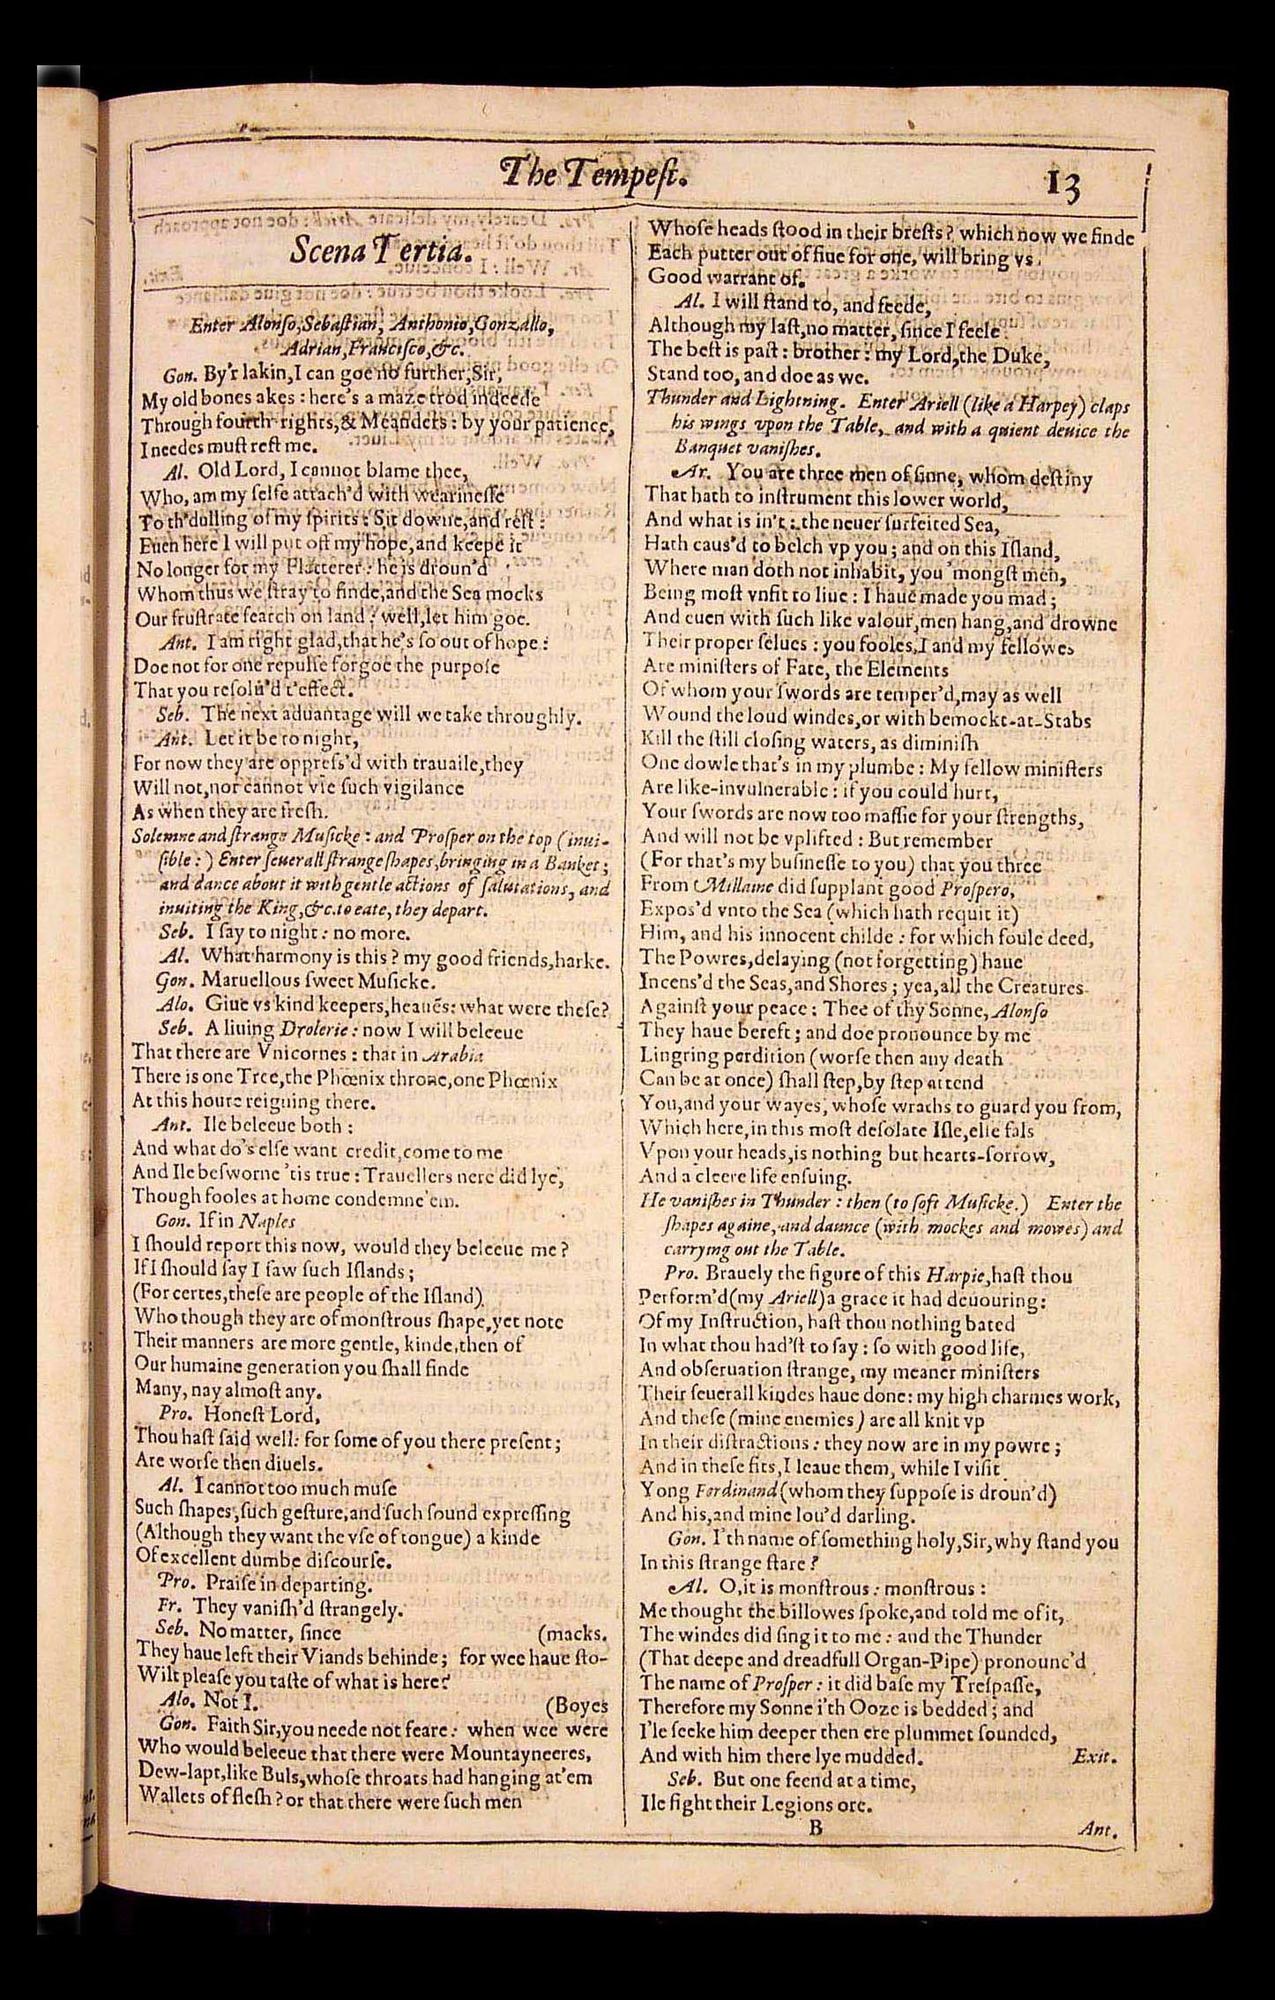 The Tempeſt.
13
Scena Tertia.
Enter Alonſo, Sebaſtian, Anthonio, Gonzallo,
Adrian, Franciſco, &c.
Gon. By'r lakin, I can goe no further, Sir,
My old bones akes: here's a maze trod indeede
Through fourth-rights, & Meanders: by your patience,
I needes muſt reſt me.
Al. Old Lord, I cannot blame thee,
Who, am my ſelfe attach'd with wearineſſe
To th'dulling of my ſpirits: Sit downe, and reſt:
Euen here I will put off my hope, and keepe it
No longer for my Flatterer: he is droun'd
Whom thus we ſtray to finde, and the Sea mocks
Our fruſtrate ſearch on land: well, let him goe.
Ant. I am right glad, that he's ſo out of hope:
Doe not for one repulſe forgoe the purpoſe
That you reſolu'd t'effect.
Seb. The next aduantage will we take throughly.
Ant. Let it be to night,
For now they are oppreſs'd with trauaile, they
Will not, nor cannot vſe ſuch vigilance
As when they are freſh.
Solemne and ſtrange Muſicke: and Proſper on the top (inui-
ſible:) Enter ſeuerall ſtrange ſhapes, bringing in a Banket;
and dance about it with gentle actions of ſalutations, and
inuiting the King, &c. to eate, they depart.
Seb. I ſay to night: no more.
Al. What harmony is this? my good friends, harke.
Gon. Maruellous ſweet Muſicke.
Alo. Giue vs kind keepers, heauẽs: what were theſe?
Seb. A liuing Drolerie: now I will beleeue
That there are Vnicornes: that in Arabia
There is one Tree, the Phœnix throne, one Phœnix
At this houre reigning there.
Ant. Ile beleeue both:
And what do's elſe want credit, come to me
And Ile beſworne 'tis true: Trauellers nere did lye,
Though fooles at home condemne'em.
Gon. If in Naples
I ſhould report this now, would they beleeue me?
If I ſhould ſay I ſaw ſuch Iſlands;
(For certes, theſe are people of the Iſland)
Who though they are of monſtrous ſhape, yet note
Their manners are more gentle, kinde, then of
Our humaine generation you ſhall finde
Many, nay almoſt any.
Pro. Honeſt Lord,
Thou haſt ſaid well: for ſome of you there preſent;
Are worſe then diuels.
Al. I cannot too much muſe
Such ſhapes, ſuch geſture, and ſuch ſound expreſſing
(Although they want the vſe of tongue) a kinde
Of excellent dumbe diſcourſe.
Pro. Praiſe in departing.
Fr. They vaniſh'd ſtrangely.
Seb. No matter, ſince (macks.
They haue left their Viands behinde; for wee haue ſto-
Wilt pleaſe you taſte of what is here?
Alo. Not I. (Boyes
Gon. Faith Sir, you neede not feare: when wee were
Who would beleeue that there were Mountayneeres,
Dew-lapt, like Buls, whoſe throats had hanging at'em
Wallets of fleſh? or that there were ſuch men
Whoſe heads ſtood in their breſts? which now we finde
Each putter out of fiue for one, will bring vs
Good warrant of.
Al. I will ſtand to, and feede,
Although my laſt, no matter, ſince I feele
The beſt is paſt: brother: my Lord, the Duke,
Stand too, and doe as we.
Thunder and Lightning. Enter Ariell (like a Harpey) claps
his wings vpon the Table, and with a quient deuice the
Banquet vaniſhes.
Ar. You are three men of ſinne, whom deſtiny
That hath to inſtrument this lower world,
And what is in't: the neuer ſurfeited Sea,
Hath caus'd to belch vp you; and on this Iſland,
Where man doth not inhabit, you 'mongſt men,
Being moſt vnfit to liue: I haue made you mad;
And euen with ſuch like valour, men hang, and drowne
Their proper ſelues: you fooles, I and my fellowes
Are miniſters of Fate, the Elements
Of whom your ſwords are temper'd, may as well
Wound the loud windes, or with bemockt-at-Stabs
Kill the ſtill cloſing waters, as diminiſh
One dowle that's in my plumbe: My fellow miniſters
Are like-invulnerable: if you could hurt,
Your ſwords are now too maſſie for your ſtrengths,
And will not be vplifted: But remember
(For that's my buſineſſe to you) that you three
From Millaine did ſupplant good Proſpero,
Expos'd vnto the Sea (which hath requit it)
Him, and his innocent childe: for which foule deed,
The Powres, delaying (not forgetting) haue
Incens'd the Seas, and Shores; yea, all the Creatures
Againſt your peace: Thee of thy Sonne, Alonſo
They haue bereft; and doe pronounce by me
Lingring perdition (worſe then any death
Can be at once) ſhall ſtep, by ſtep attend
You, and your wayes, whoſe wraths to guard you from,
Which here, in this moſt deſolate Iſle, elſe fals
Vpon your heads, is nothing but hearts-ſorrow,
And a cleere life enſuing.
He vaniſhes in Thunder: then (to ſoft Muſicke.) Enter the
ſhapes againe, and daunce (with mockes and mowes) and
carrying out the Table.
Pro. Brauely the figure of this Harpie, haſt thou
Perform'd (my Ariell) a grace it had deuouring:
Of my Inſtruction, haſt thou nothing bated
In what thou had'ſt to ſay: ſo with good life,
And obſeruation ſtrange, my meaner miniſters
Their ſeuerall kindes haue done: my high charmes work,
And theſe (mine enemies) are all knit vp
In their diſtractions: they now are in my powre;
And in theſe fits, I leaue them, while I viſit
Yong Ferdinand (whom they ſuppoſe is droun'd)
And his, and mine lou'd darling.
Gon. I'th name of ſomething holy, Sir, why ſtand you
In this ſtrange ſtare?
Al. O, it is monſtrous: monſtrous:
Me thought the billowes ſpoke, and told me of it,
The windes did ſing it to me: and the Thunder
(That deepe and dreadfull Organ-Pipe) pronounc'd
The name of Proſper: it did baſe my Treſpaſſe,
Therefore my Sonne i'th Ooze is bedded; and
I'le ſeeke him deeper then ere plummet ſounded,
And with him there lye mudded. Exit.
Seb. But one feend at a time,
Ile fight their Legions ore.
B
Ant.